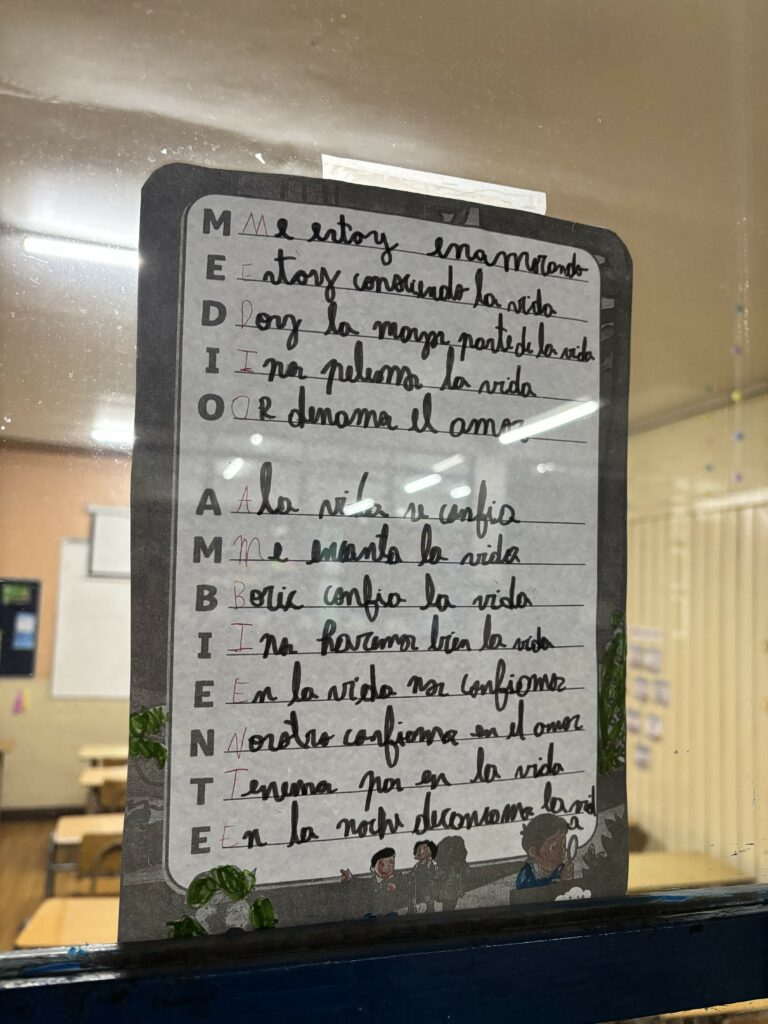 M Me estoy enamorando
E Estoy conociendo la vida
D Doy la mayor parte de la vida
I I nos la vida
O OR denamos el amor
A A la vida se confia
M Me encanta la vida
B Boric confia la vida
I I nos haremos bien la vida
E En la vida nos confiamos
N Nosotro confiamos en el amor
T Tenemos en la vida
E En la noche la vida